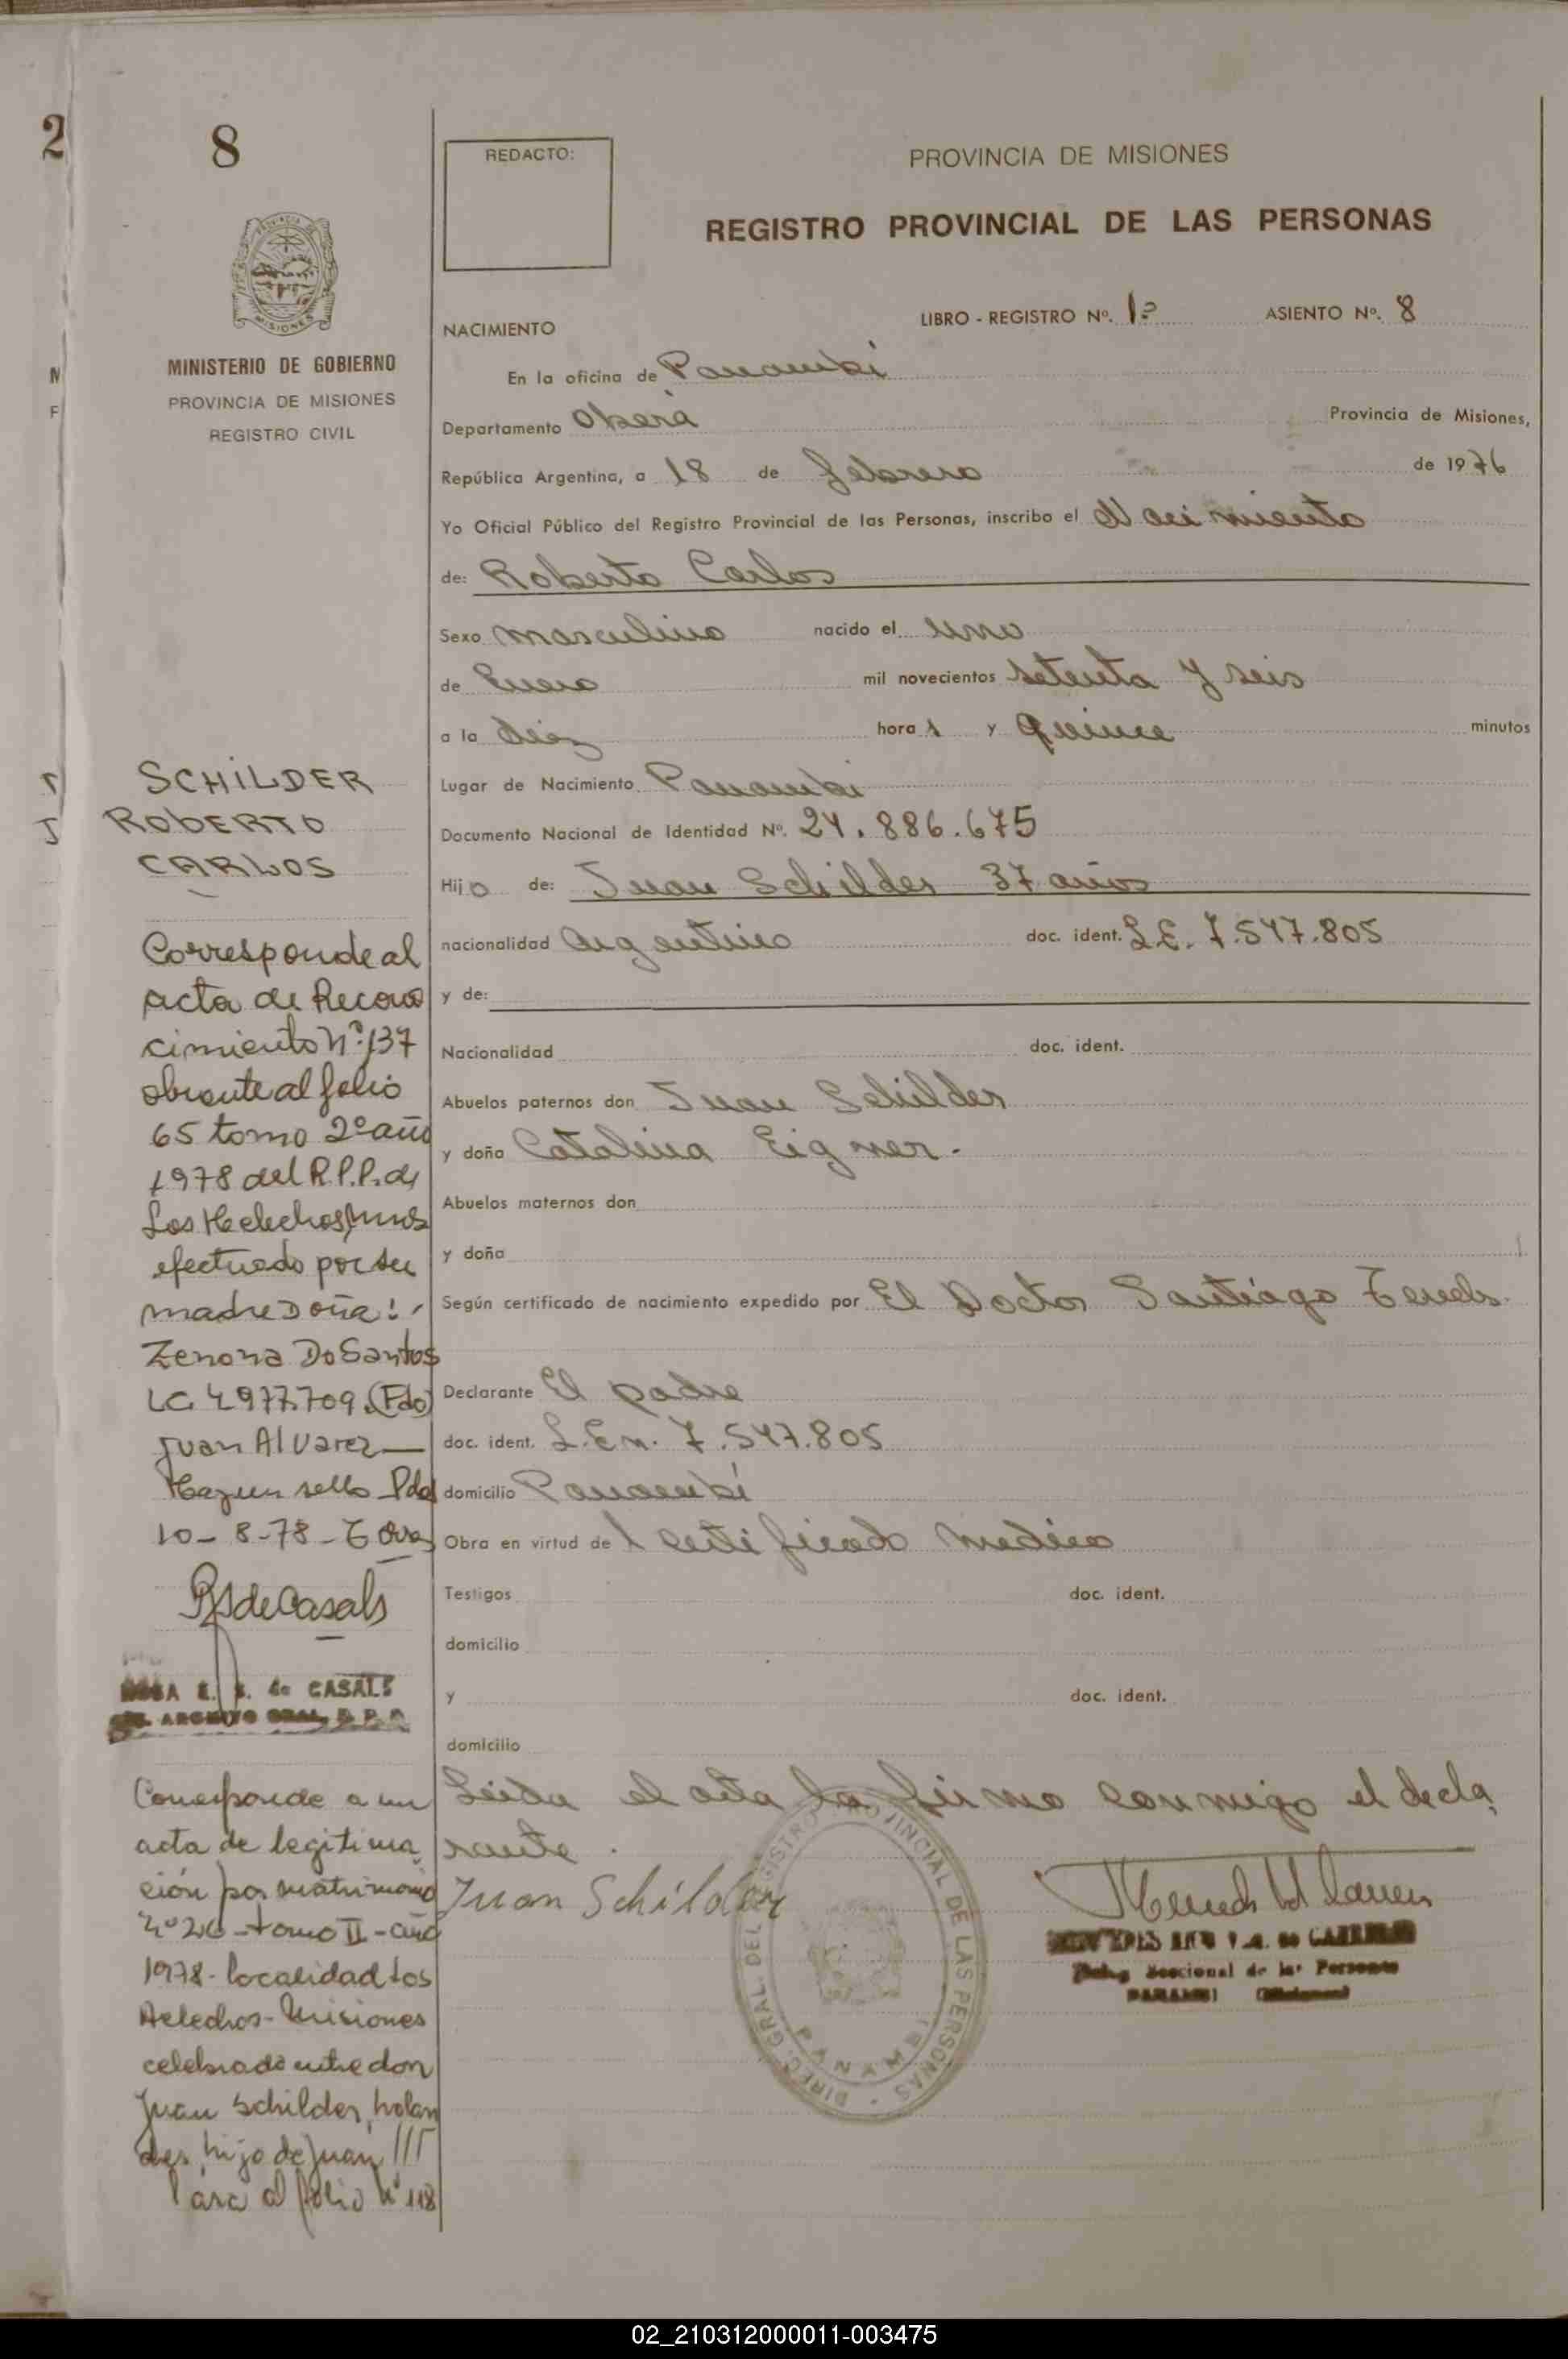 2
8
REDACTO:
PROVINCIA DE MISIONES
REGISTRO PROVINCIAL DE LAS PERSONAS
MISIONES
MINISTERIO DE GOBIERNO
PROVINCIA DE MISIONES
REGISTRO CIVIL
NACIMIENTO
LIBRO - REGISTRO Nº. 1º ASIENTO Nº. 8
En la oficina de Panambi
Departamento Obera Provincia de Misiones,
República Argentina, a 18 de febrero de 1976
Yo Oficial Público del Registro Provincial de las Personas, inscribo el Nacimiento
de: Roberto Carlos
Sexo masculino nacido el uno
de Enero mil novecientos setenta y seis
a la diez hora s y quince minutos
Lugar de Nacimiento Panambi
Documento Nacional de Identidad Nº. 24.886.675
Hijo de: Juan Schilder 37 años
nacionalidad Argentino doc. ident. L.E. 7.547.805
y de:
Nacionalidad doc. ident.
Abuelos paternos don Juan Schilder
y doña Catalina Eigner.
Abuelos maternos don
y doña
Según certificado de nacimiento expedido por El Doctor Santiago
Declarante El padre
doc. ident. L.E.n. 7.547.805
domicilio Panambí
Obra en virtud de 1 certificado medico
Testigos doc. ident.
domicilio
y doc. ident.
domicilio
Leida el acta la firma conmigo el decla
rante.
Juan Schilder
DIREC. GRAL. DEL REGISTRO PROVINCIAL DE LAS PERSONAS - PANAMBI
Seccional de las Personas
PANAMBI (Misiones)
SCHILDER
ROBERTO
CARLOS
Corresponde al
acta de Recono
cimiento Nº:137
obrante al folio
65 tomo 2º año
1978 del R.P.P. de
Los Helechos, Mnes
efectuado por su
madre Doña:
Zenona Do Santos
LC. 4.977.709. (Fdo)
Juan Alvarez
Hay un sello Pdas
10-8-78-
RS de Casals
ROSA E. S. de CASALS
ARCHIVO GRAL. R. P. P.
Corresponde a un
acta de legitima
ción por matrimonio
Nº 26 - tomo II - año
1978 - localidad Los
Helechos - Misiones
celebrado entre don
Juan Schilder, holan
des, hijo de Juan ///
Pasa al folio Nº 118
02_210312000011-003475